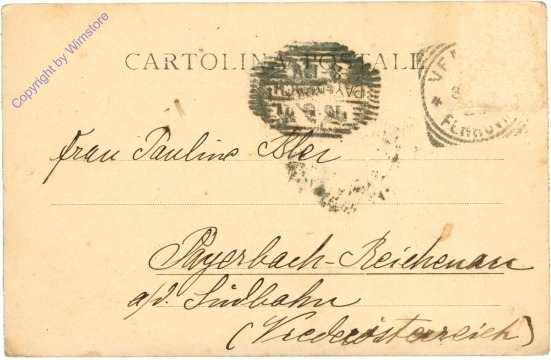 Copyright by Wimstore
CARTOLINA POSTALE
PAYERBACH
FERROVIA
Frau Pauline Isler
Payerbach-Reichenau
a/d. Südbahn
(Niederösterreich)